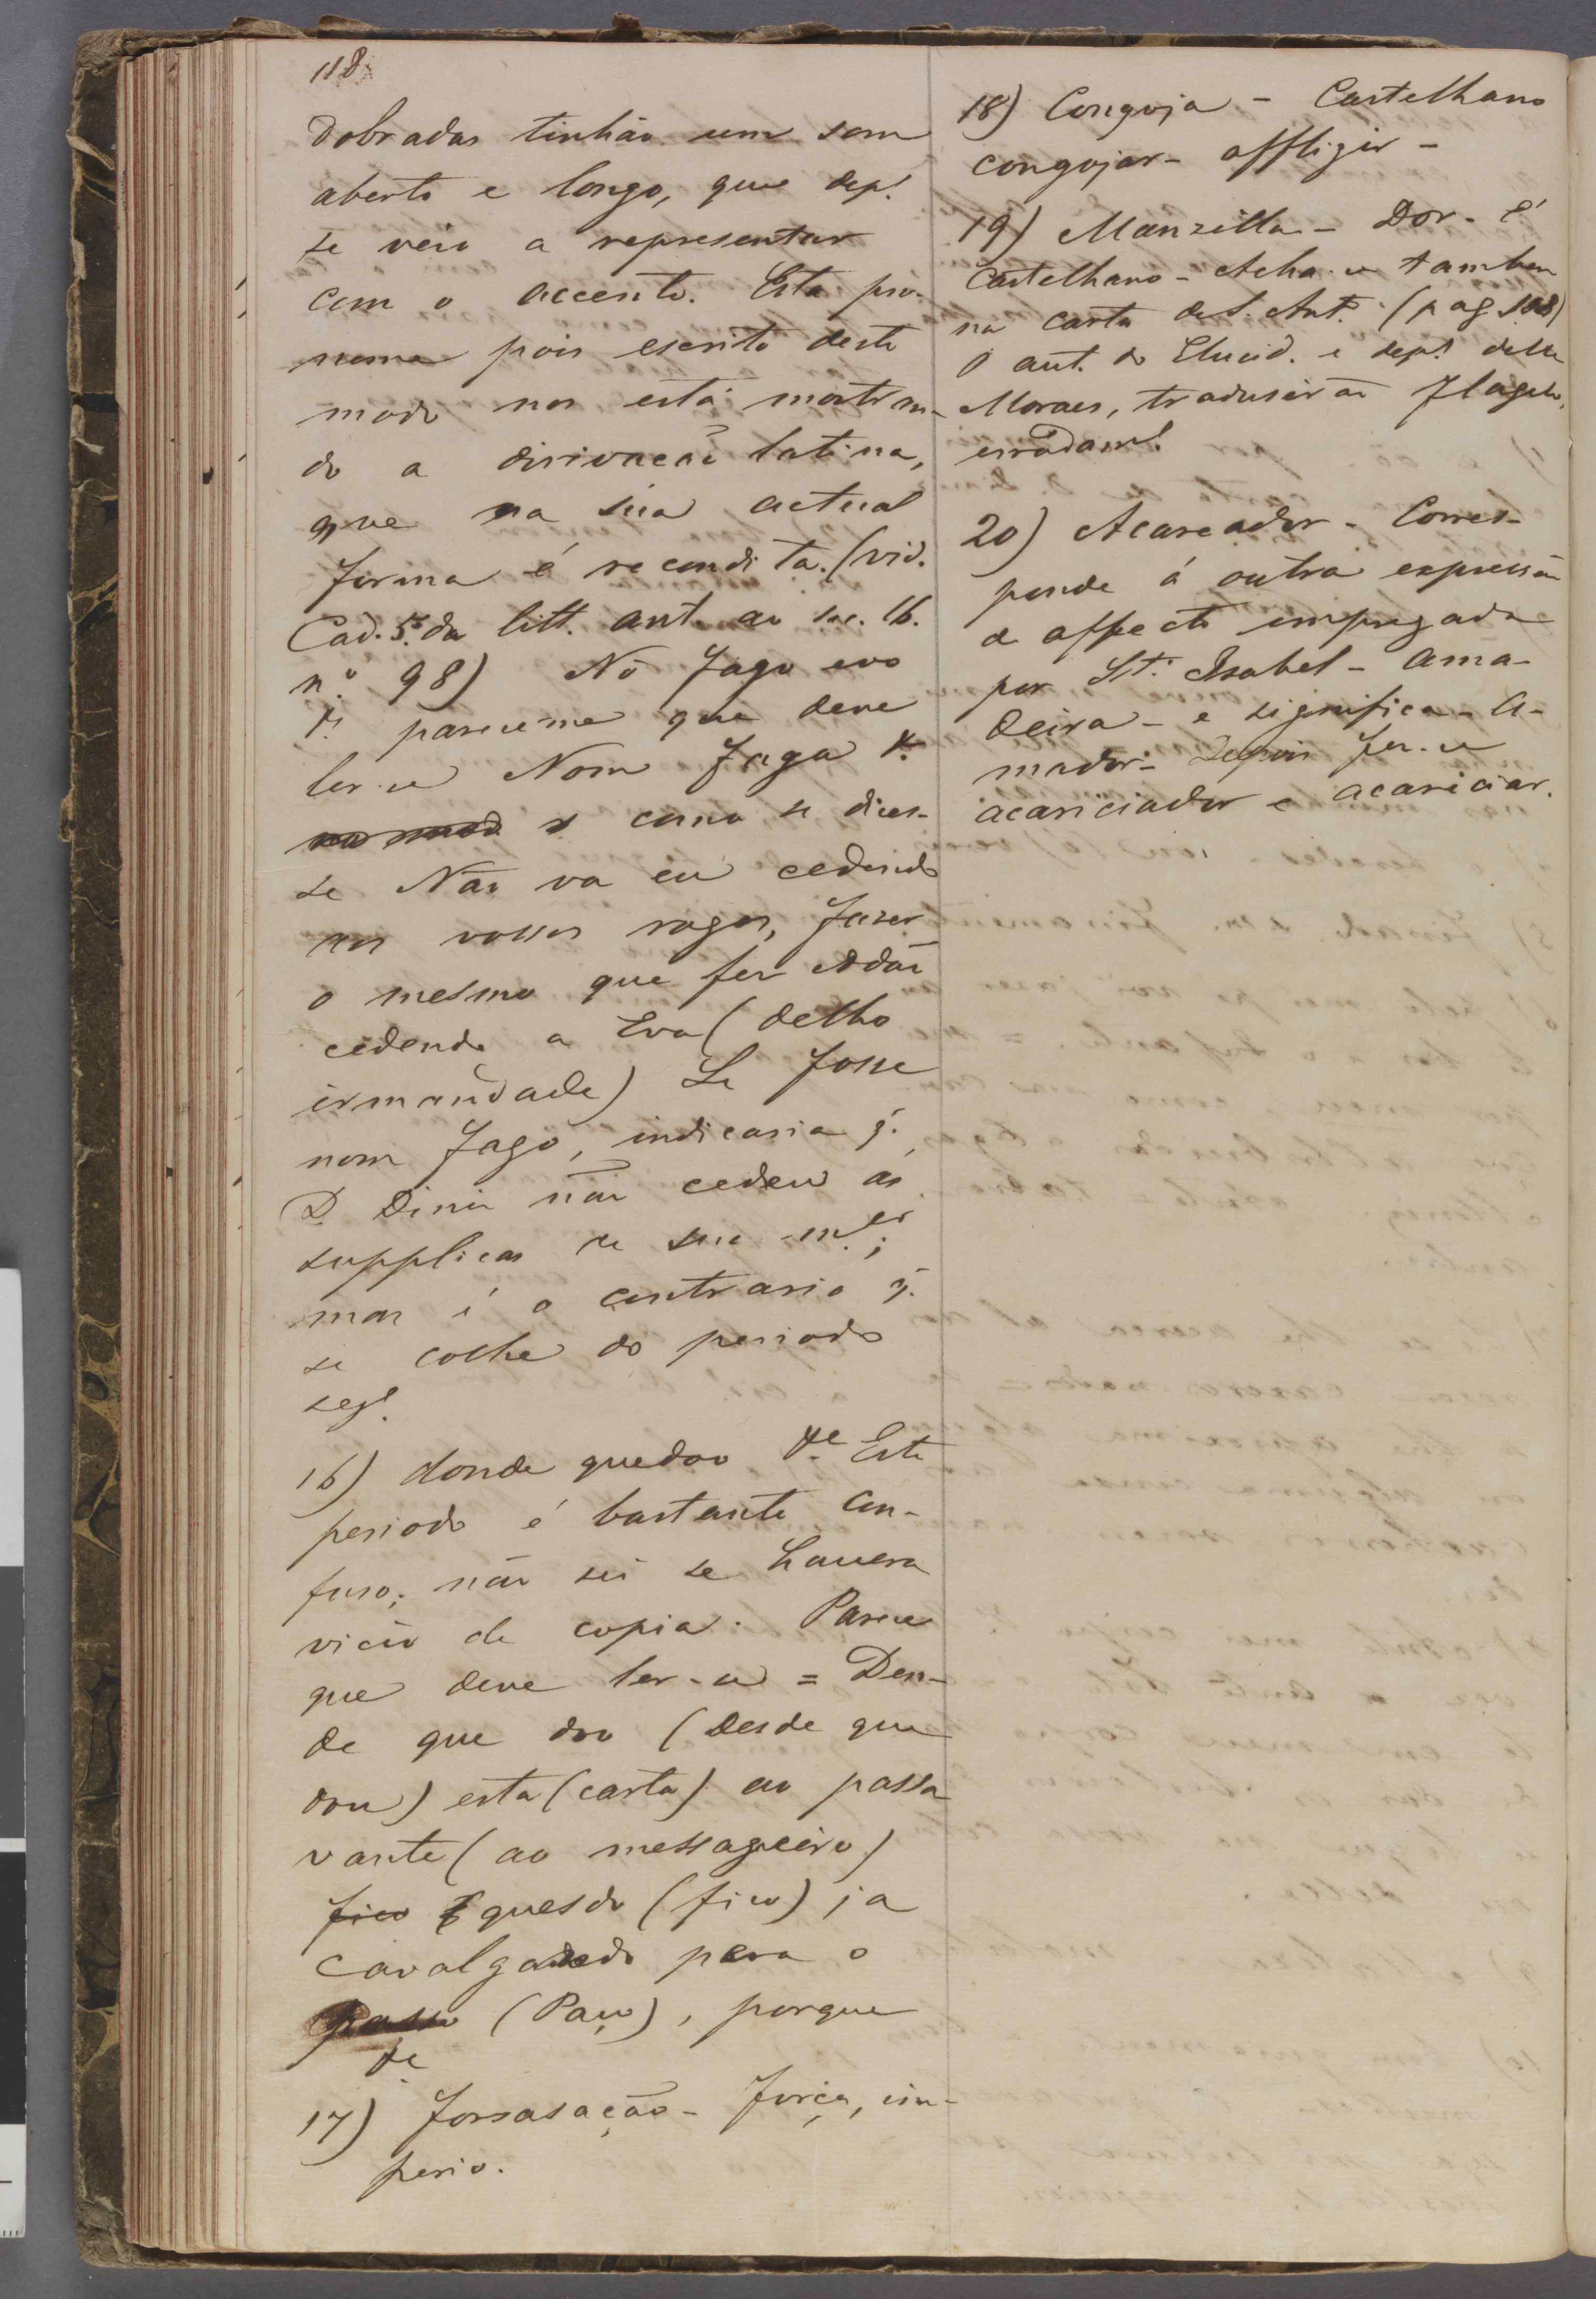 118
dobradas tinhão um som
aberto e longo, que dep.s
se veio a representar
com o accento. Este pro-
nome pois escrito deste
modo nos está mostran-
do a dirivação latina,
que na sua actual
forma é recondita. (vid.
Cad. 5.º da litt. ant. ao sec. 16.
n.º 98) Nõ fago evo
pareceme que deve
ler-se Nom faga &.
como se dices-
se Não va eu cedendo
aos vossos rogos, faser
o mesmo que fez Adão
cedendo a Eva (delho
irmandade) Se fosse
nom fago, indicaria q.
D. Dinis não cedeu ás
supplicas de sua m.er;
mas é o contrario q.
se colhe do periodo
seg.e
16) donde quedoo &.e Este
periodo é bastante con-
fuso; não sei se havera
vicio de copia. Parece
que deve ler-se = Den-
de que doo (desde que
dou) esta (carta) ao passa
vante (ao messageiro)
fico quesdo (fico) ja
cavalgando pera o
passo (Paço), porque
&.e
17) forsasação - força, im-
perio.
18) Congoja - Castelhano
congojar - affligir -
19) Manzilla - Dor - É
Castelhano - Acha-se tambem
na carta de S. Ant.º (pag 108)
O aut. do Elucid. e dep.s delle
Moraes, tradusirão flagelo,
erradam.e
20) Acareador - Corres-
ponde á outra expressão
de affecto empregada
por St.ª Isabel - ama-
deira - e significa - A-
mador - Depois fez-se
acariciador e acariciar.